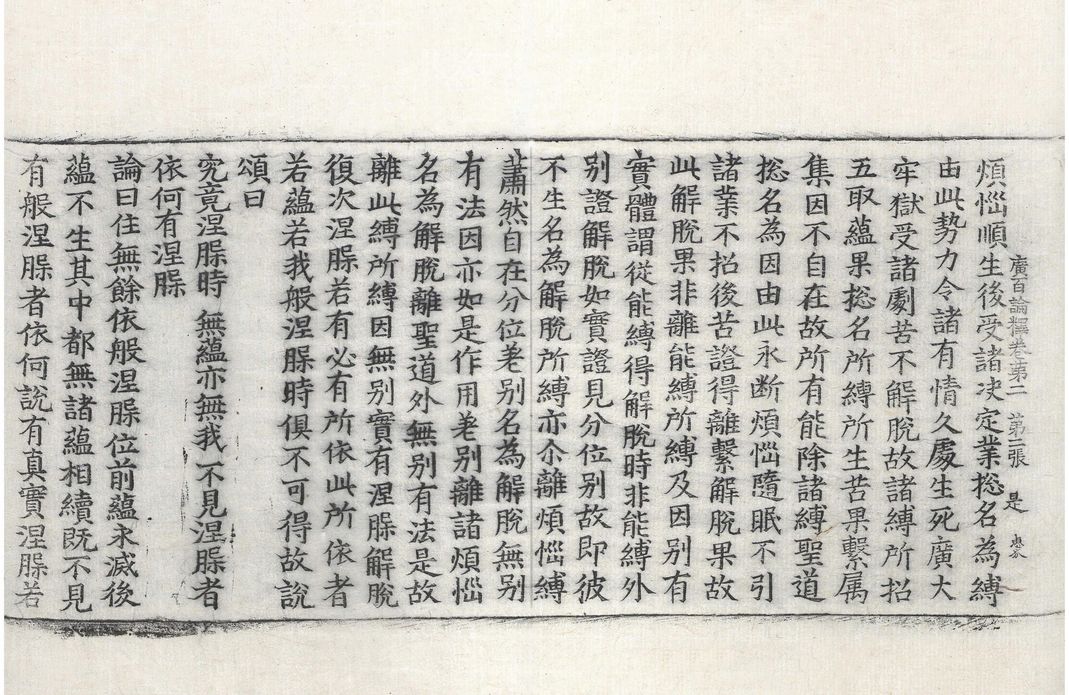 煩惱順生後受諸决定業惣名為縛
廣百論釋卷第二 第二張 是
由此勢力令諸有情久處生死廣大
牢獄受諸劇苦不解脫故諸縛所招
五取蘊果惣名所縛所生苦果繫属
集因不自在故所有能除諸縛聖道
惣名為因由此永断煩惱隨眠不引
諸業不招後苦證得離繫解脫果故
此解脫果非離能縛所縛及因别有
實體謂從能縛得解脫時非能縛外
别證解脫如實證見分位别故即彼
不生名為解脫所縛亦尒離煩惱縛
蕭然自在分位差别名為解脫無别
有法因亦如是作用差别離諸煩惱
名為解脫離聖道外無别有法是故
離此縛所縛因無别實有涅槃解脫
復次涅槃若有必有所依此所依者
若蘊若我般涅槃時俱不可得故說
頌曰
究竟涅槃時 無蘊亦無我 不見涅槃者
依何有涅槃
論曰住無餘依般涅槃位前蘊永滅後
蘊不生其中都無諸蘊相續既不見
有般涅槃者依何說有真實涅槃若